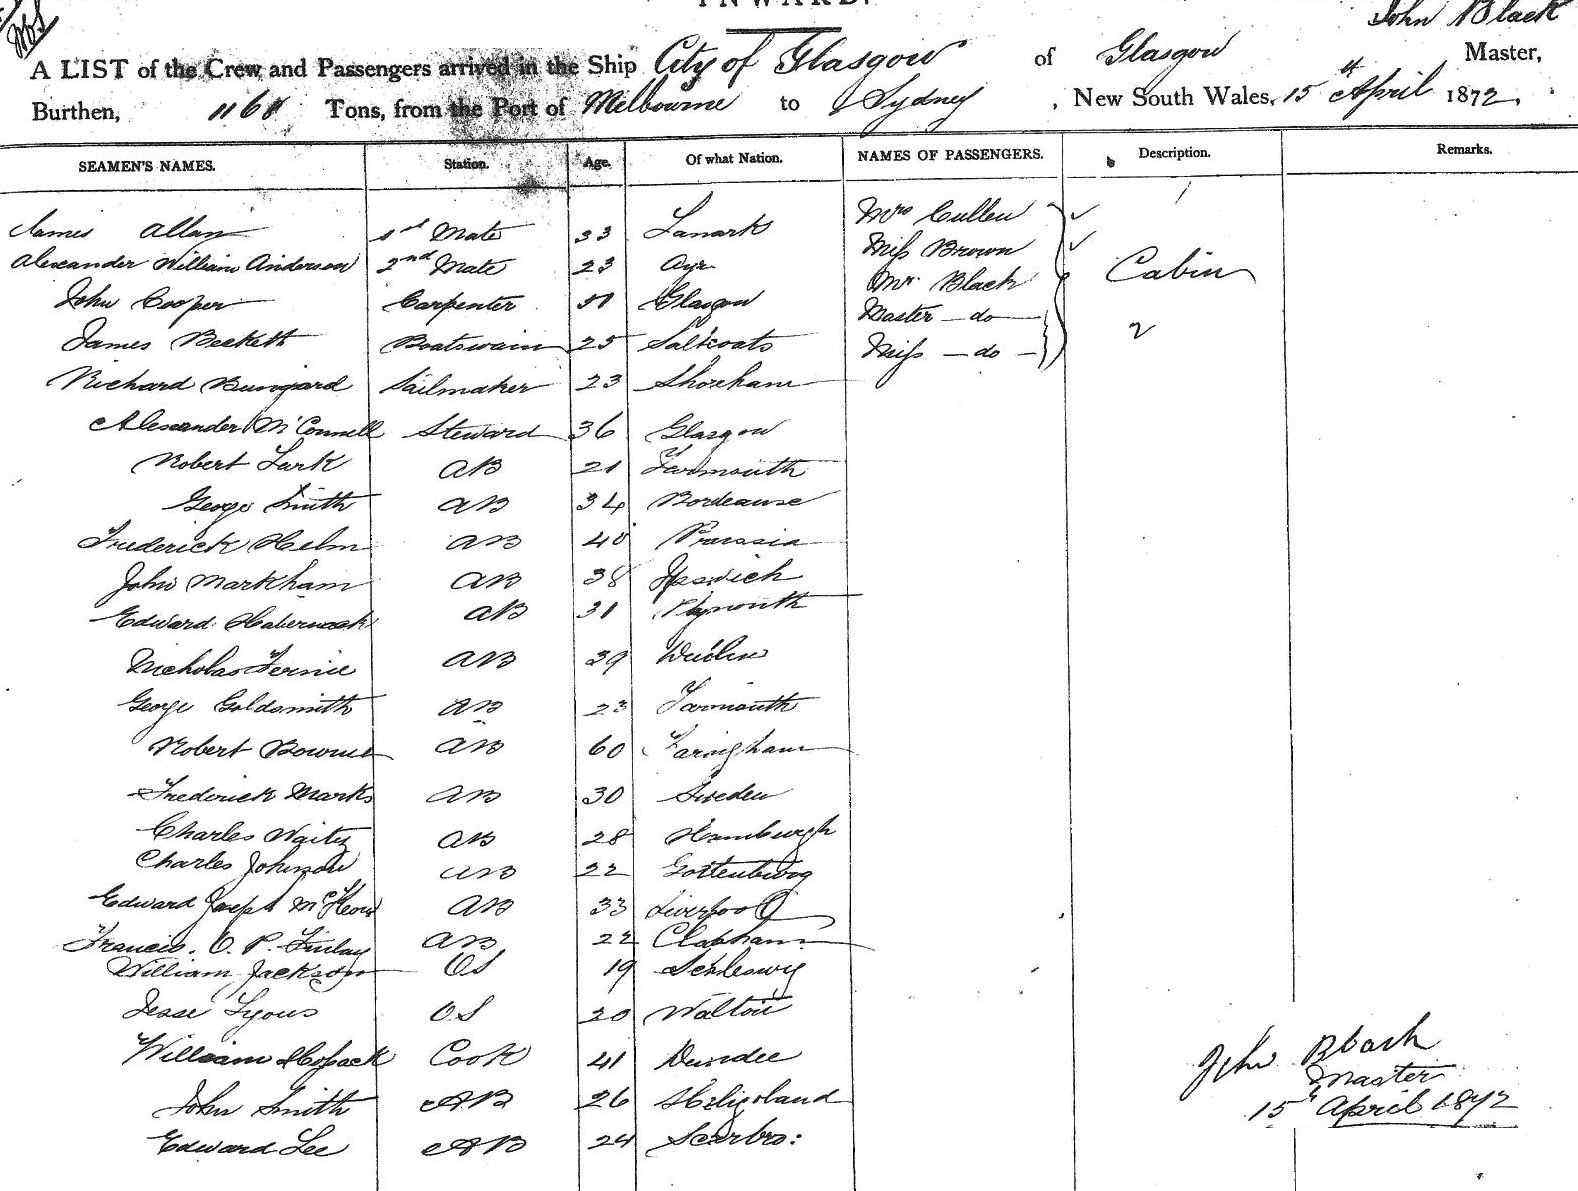 INWARD.
John Black
A LIST of the Crew and Passengers arrived in the Ship City of Glasgow of Glasgow Master,
Burthen, 1168 Tons, from the Port of Melbourne to Sydney, New South Wales, 15th April 1872.
SEAMEN'S NAMES. Station. Age. Of what Nation. NAMES OF PASSENGERS. Description. Remarks.
James Allan 1st Mate 33 Lanark Mrs Cullen
Alexander William Anderson 2nd Mate 23 Ayr Miss Brown Cabin
John Cooper Carpenter Glasgow Mr Black
James Beckett Boatswain 25 Saltcoats Master — do —
Richard Bungard Sailmaker 23 Shoreham Miss — do —
Alexander McConnell Steward 36 Glasgow
Robert Lark AB 21 Yarmouth
George Smith AB 34 Bordeause
Frederick Helm AB 40 Prussia
John Markham AB 38 Ipswich
Edward AB 31 Plymouth
Nicholas Fernie AB 39
George Goldsmith AB 23 Yarmouth
Robert Bowne AB 60 Farningham
Frederick Marks AB 30 Sweden
Charles Waitz AB 28 Hamburgh
Charles Johnson AB 22 Gottenburg
Edward Joseph McKeon AB 33 Liverpool
Francis O. P. Finlay AB 22 Clapham
William Jackson OS 19 Schleswig
Jesse Lyons OS 20 Walton
William Hossack Cook 41 Dundee
John Smith AB 26 Heligoland
Edward Lee AB 24 Scarbro:
John Black
Master
15th April 1872